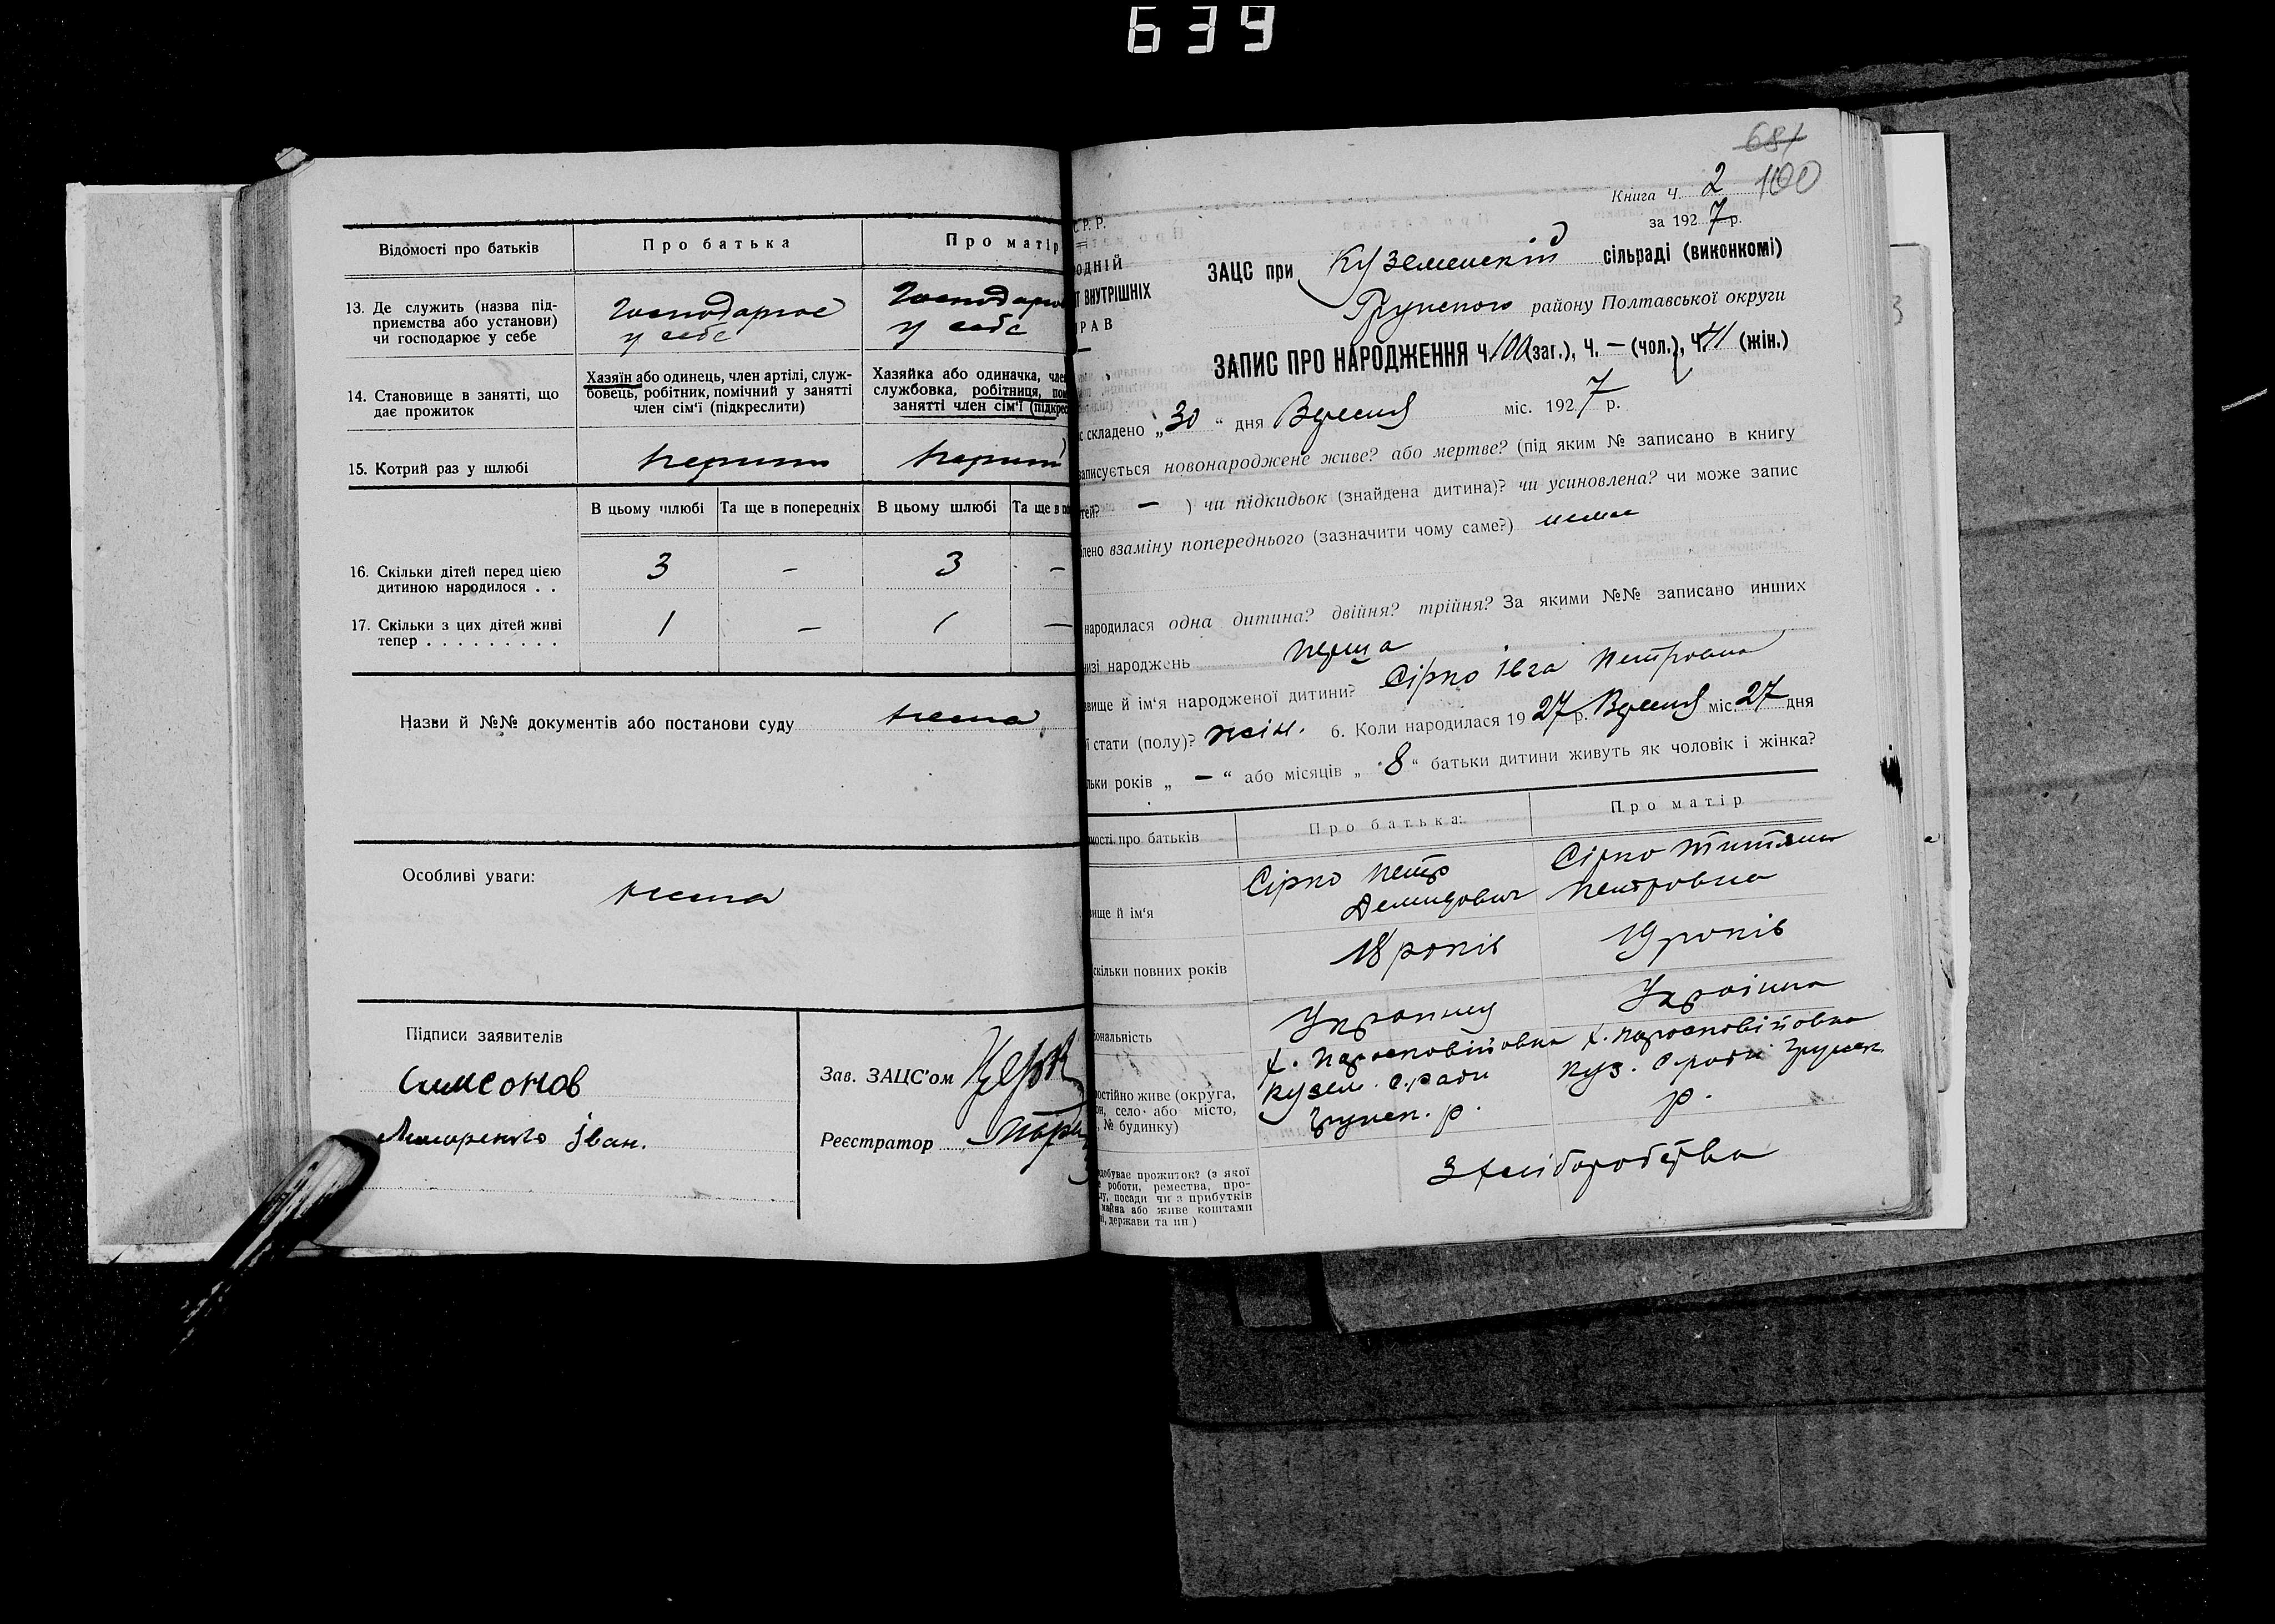 639
Відомості про батьків
Про батька
Про матір
13. Де служить (назва під-
приємства або установи)
чи господарює у себе
Господарює
у себе
Господарює
у себе
14. Становище в занятті, що
дає прожиток
Хазяїн або одинець, член артілі, служ-
бовець, робітник, помічний у занятті
член сім'ї (підкреслити)
Хазяйка або одиначка, член
службовка, робітниця, пом
занятті член сім'ї (підкрес
15. Котрий раз у шлюбі
перший
перший
В цьому шлюбі
Та ще в попередніх
В цьому шлюбі
Та ще в по
16. Скільки дітей перед цією
дитиною народилося . .
3 - 3 -
17. Скільки з цих дітей живі
тепер . . . . . . . . .
1 - 1 -
Назви й №№ документів або постанови суду нема
Особливі уваги:
нема
Підписи заявителів
Симонов
Іван.
Зав. ЗАЦС'ом
Реєстратор
681
100
Книга Ч. 2
за 1927 р.
С. Р. Р.
ОДНІЙ
Т ВНУТРІШНІХ
РАВ
ЗАЦС при Куземенскій сільраді (виконкомі)
Грунского району Полтавської округи
ЗАПИС ПРО НАРОДЖЕННЯ Ч. 100 (заг.), Ч. — (чол.), Ч. 41 (жін.)
с складено „30“ дня Вересня міс. 1927 р.
записується новонароджене живе? або мертве? (під яким № записано в книгу
тей? — ) чи підкидьок (знайдена дитина)? чи усиновлена? чи може запис
лено взаміну попереднього (зазначити чому саме?) нема
народилася одна дитина? двійня? трійня? За якими №№ записано инших
изі народжень перша
звище й ім'я народженої дитини? Сірко Івга Петровна
ї стати (полу)? жін. 6. Коли народилася 1927 р. Вересня міс. 27 дня
льки років „ — “ або місяців „ 8 “ батьки дитини живуть як чоловік і жінка?
мості про батьків
Про батька:
Про матір
вище й ім'я
Сірко Петр
Демидович
Сірко
Петровна
скільки повних років
18 років
19 років
іональність
Українец
Українка
остійно живе (округа,
он, село або місто,
, № будинку)
Кузем. с.ради
Грунск. р.
Куз. с.ради Грунск.
р.
здобуває прожиток? (з якої
роботи, ремества, про-
ду, посади чи з прибутків
майна або живе коштами
ні, держави та ин )
З хліборобства